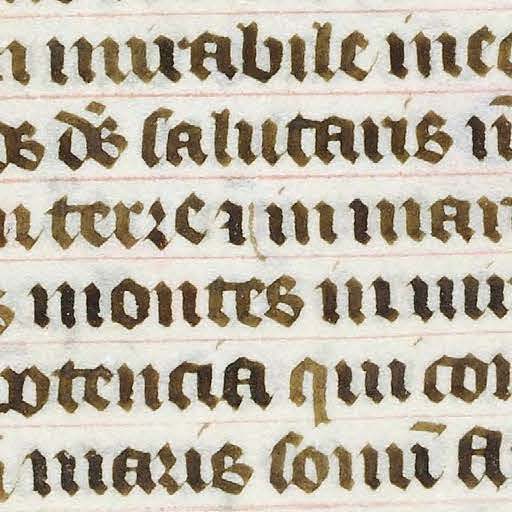 mirabile in e
ds salutaris nr̄
terre ⁊ in mari
montes in uir
potencia qui con
maris sonū